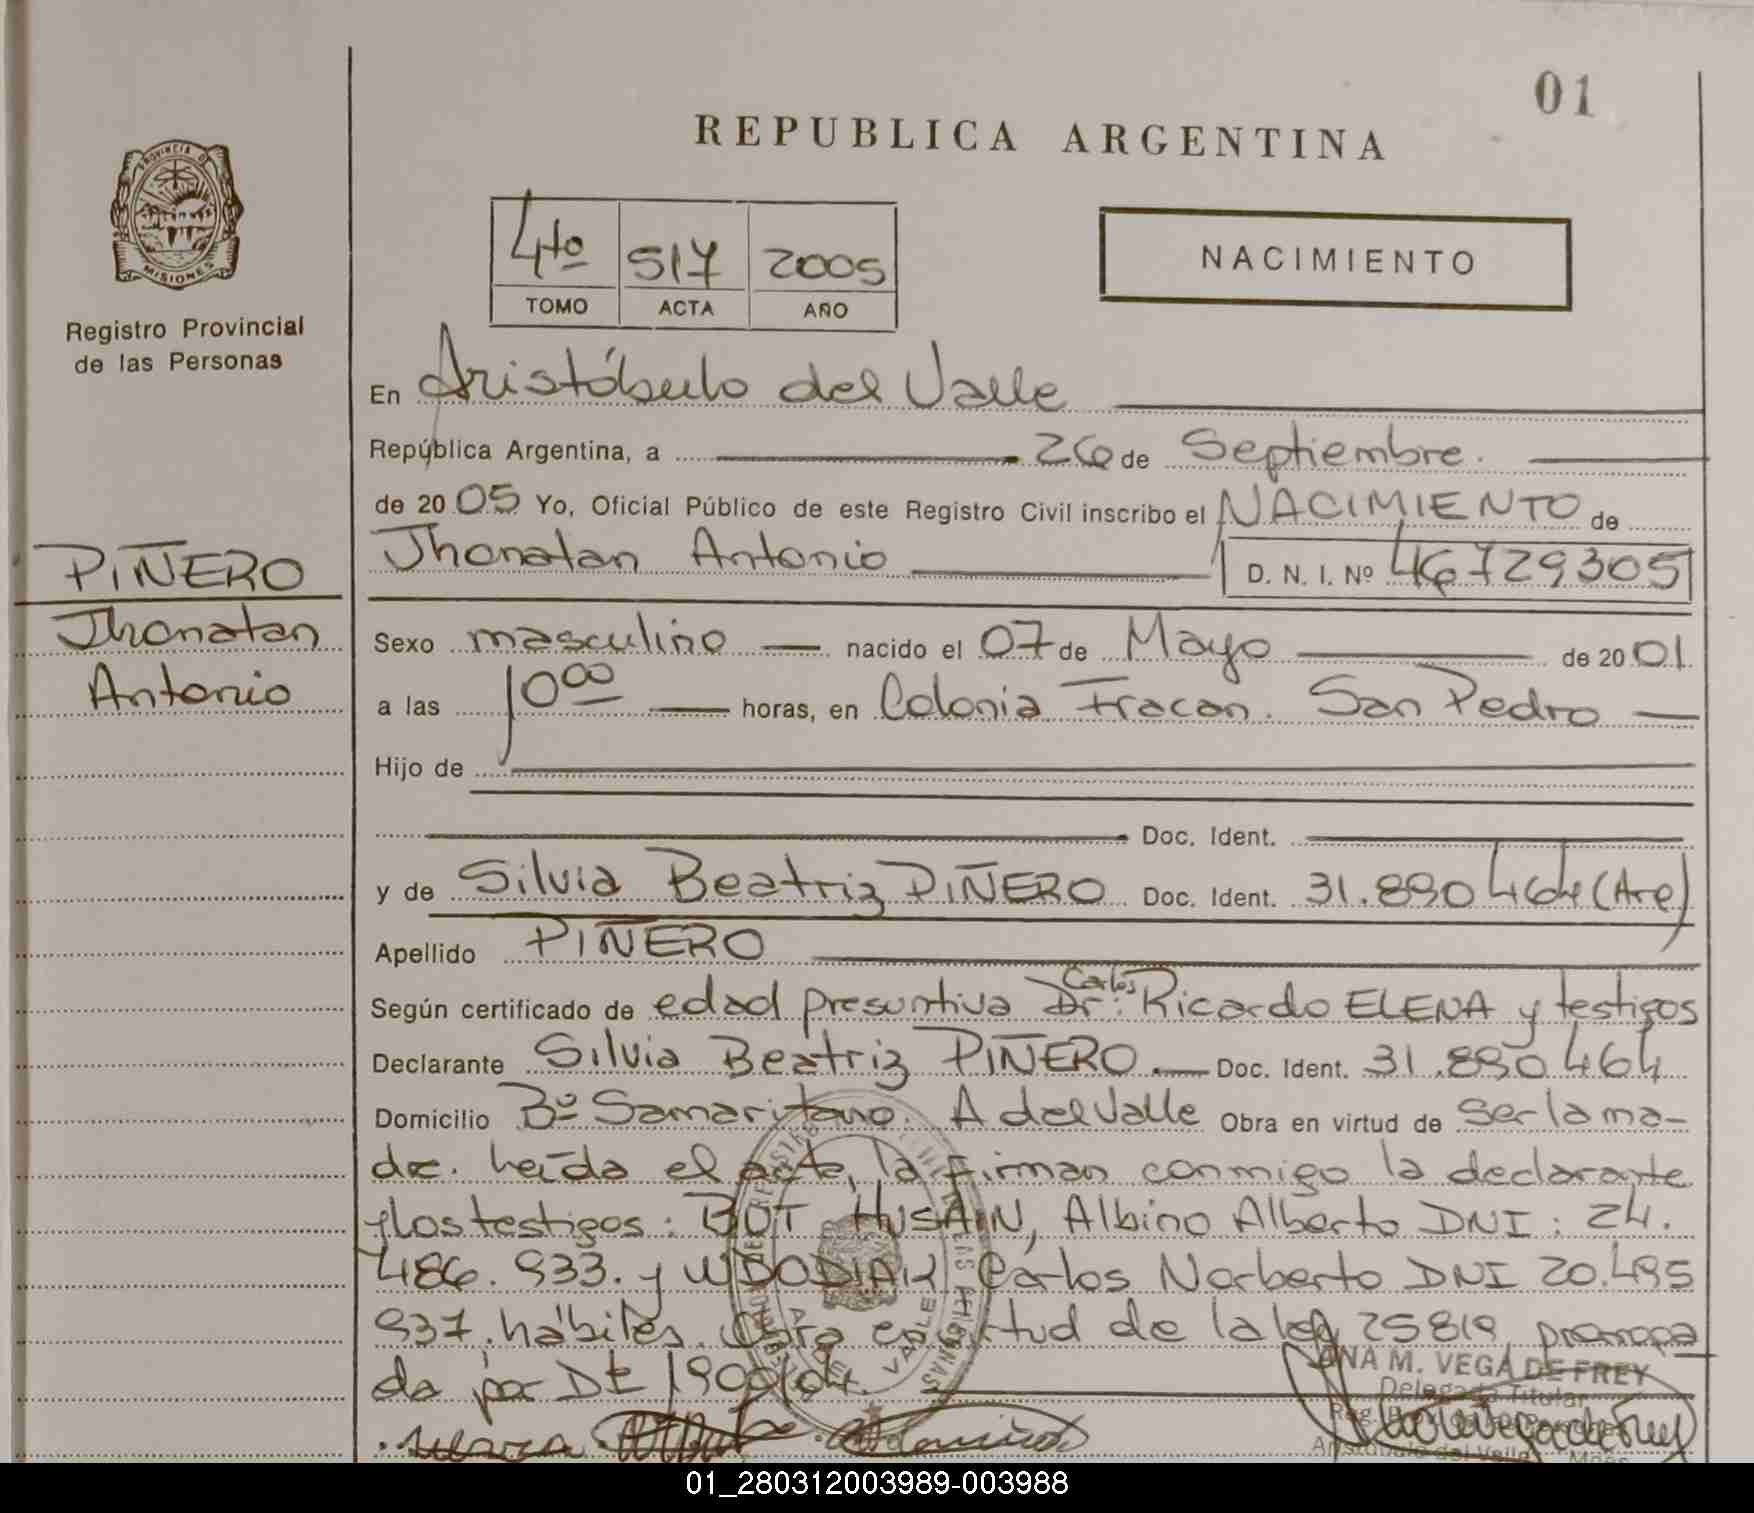 01
REPUBLICA ARGENTINA
PROVINCIA DE
MISIONES
Registro Provincial
de las Personas
4to 517 2005
TOMO ACTA AÑO
NACIMIENTO
En Aristóbulo del Valle
República Argentina, a 26 de Septiembre.
de 2005 Yo, Oficial Público de este Registro Civil inscribo el NACIMIENTO de
PIÑERO
Jhonatan
Antonio
Jhonatan Antonio D. N. I. Nº 46729305
Sexo masculino nacido el 07 de Mayo de 2001
a las 10⁰⁰ horas, en Colonia Fracan. San Pedro
Hijo de
Doc. Ident.
y de Silvia Beatriz PIÑERO Doc. Ident. 31.890464 (Arg)
Apellido PIÑERO
Según certificado de edad presuntiva Dr: Carlos Ricardo ELENA y testigos
Declarante Silvia Beatriz PIÑERO. Doc. Ident. 31.890464
Domicilio Bº Samaritano. A del Valle Obra en virtud de ser la ma-
dre. leída el acta, la firman conmigo la declarante
y los testigos: BOT HUSAIN, Albino Alberto DNI: 24.
486.933. y WDODIAK Carlos Norberto DNI 20.495
937. hábiles. Obra en virtud de la ley 25819 prorroga
da por Dt 1900/04.
ANA M. VEGA DE FREY
Delegada Titular
Aristóbulo del Valle
01_280312003989-003988